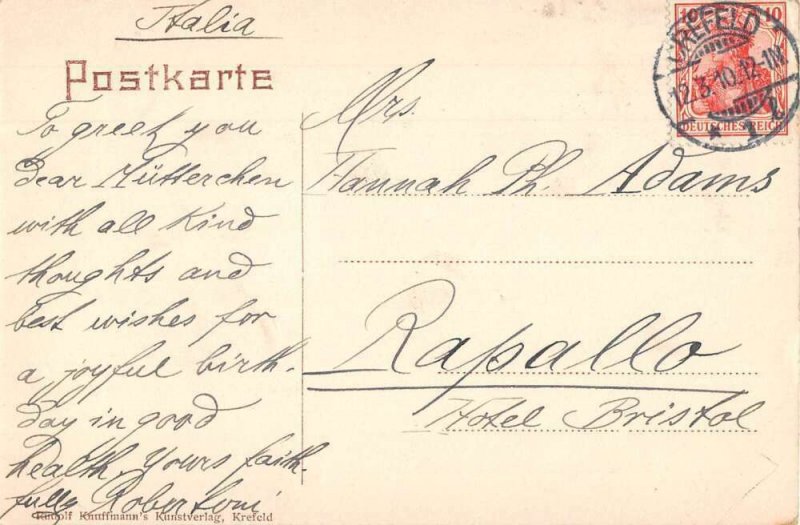 Italia
Postkarte
To greet you
dear Mütterchen
with all kind
thoughts and
best wishes for
a joyful birth-
day in good
health. Yours faith-
fully
Rudolf Knuffmann's Kunstverlag, Krefeld
Mrs.
Hannah Ph. Adams
Rapallo
Hotel Bristol
10 10
DEUTSCHES REICH
CREFELD
12.3.10.12-1N